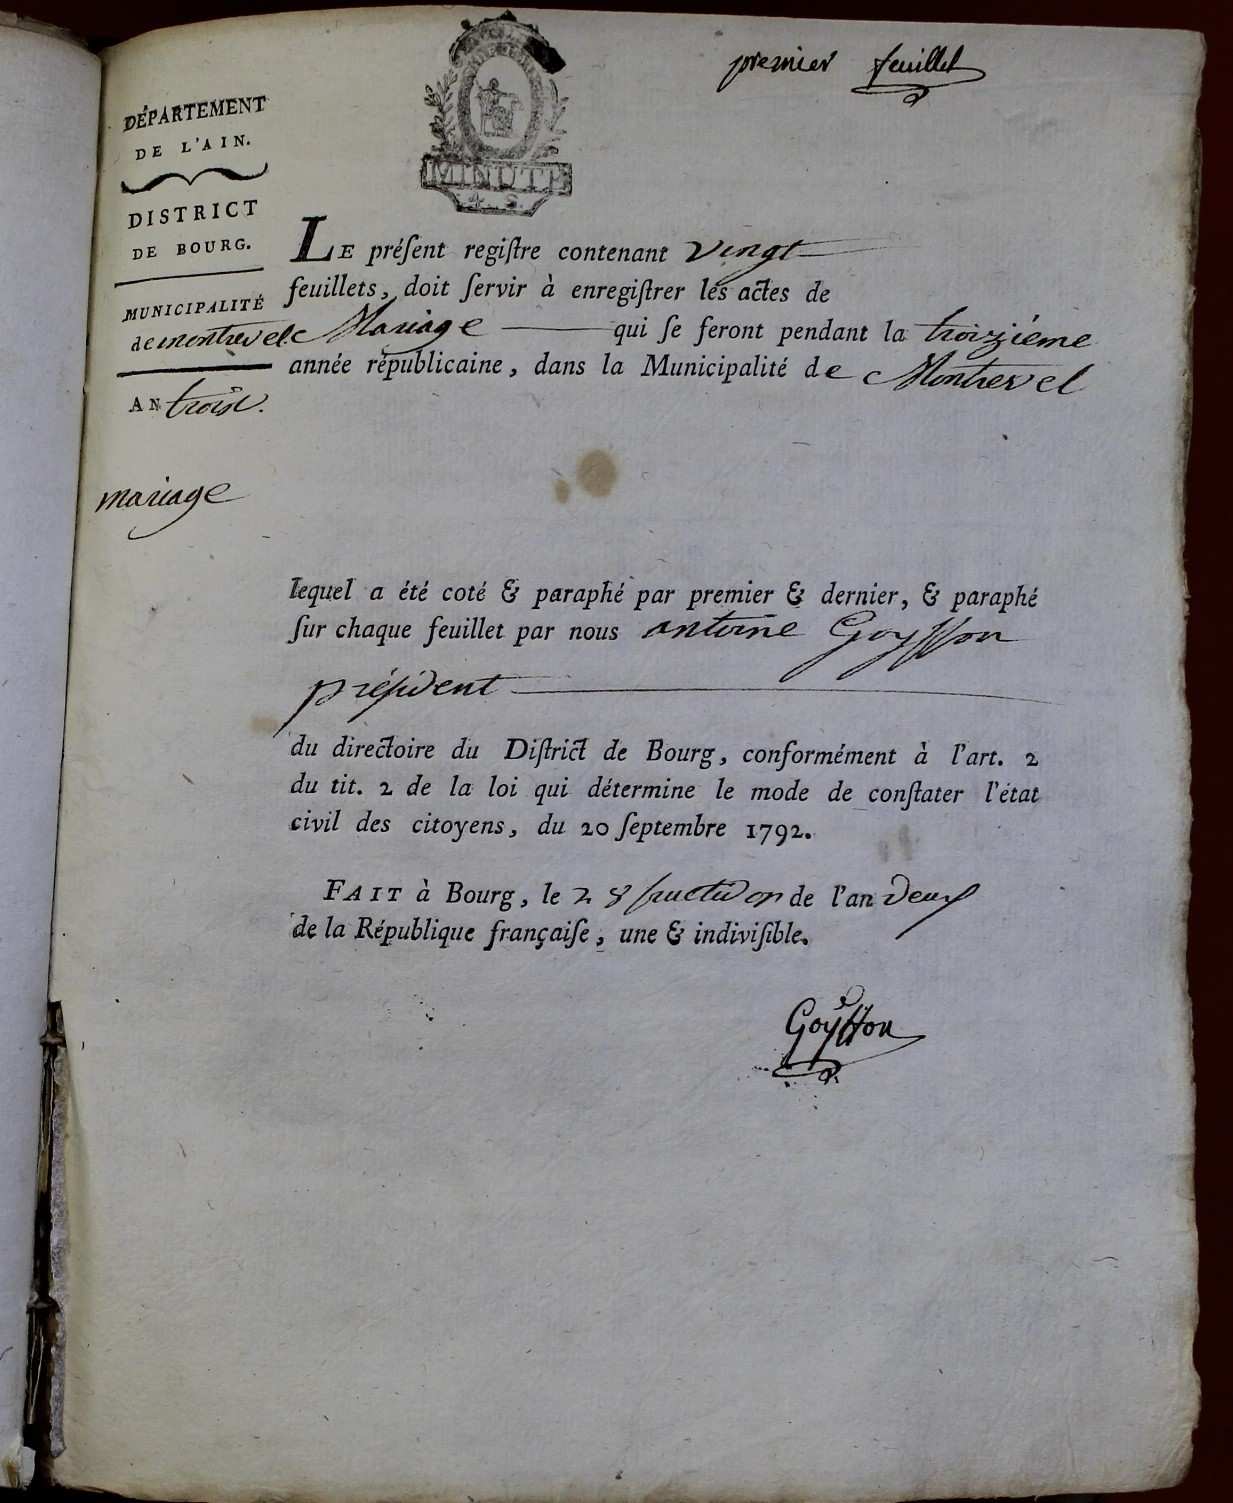 premier feuillet
MINUTE
4. S.
DÉPARTEMENT
DE L'AIN.
DISTRICT
DE BOURG.
MUNICIPALITÉ
de montrevel
AN trois.
mariage
LE préſent regiſtre contenant vingt
feuillets, doit ſervir à enregiſtrer les actes de
Mariage qui ſe feront pendant la troiziéme
année républicaine, dans la Municipalité de Montrevel
lequel a été coté & paraphé par premier & dernier, & paraphé
ſur chaque feuillet par nous antoine Goyffon
préſident
du directoire du Diſtrict de Bourg, conformément à l'art. 2
du tit. 2 de la loi qui détermine le mode de conſtater l'état
civil des citoyens, du 20 ſeptembre 1792.
FAIT à Bourg, le 28 fructidor de l'an deux
de la République françaiſe, une & indiviſible.
Goyffon